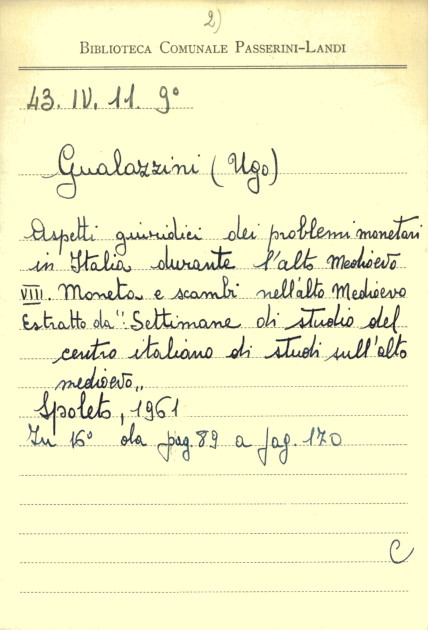 2)
BIBLIOTECA COMUNALE PASSERINI-LANDI
43. IV. 11. 9°
Gualazzini (Ugo)
Aspetti giuridici dei problemi monetari
in Italia durante l'alto Medioevo
VIII. Moneta e scambi nell'alto Medioevo
Estratto da": Settimane di studio del
centro italiano di studi sull'alto
medioevo„
Spoleto, 1961
In 16° da pag. 89 a pag. 170
C